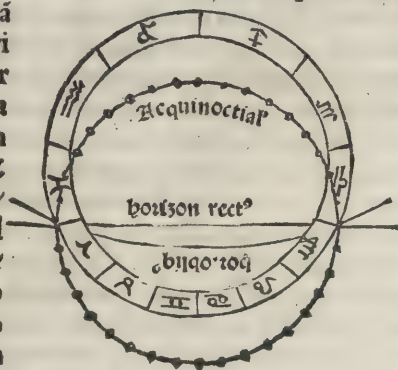 Aequinoctial
horizon rectꝰ
hor. obliqꝰ
♑ ♐
♒ ♏
♓ ♎
♈ ♍
♉ ♌
♊ ♋